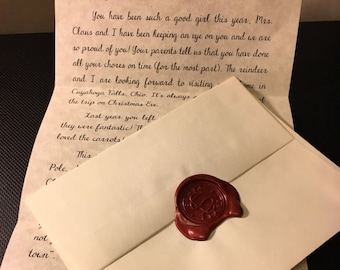 You have been such a good girl this year, Mrs.
Claus and I have been keeping an eye on you and we are
so proud of you! Your parents tell us that you have done
all your chores on time (for the most part). The reindeer
and I are looking forward to visiting you in
Cuyahoga Falls, Ohio. It's always
the trip on Christmas Eve.
Last year you left
they were fantastic! Th
loved the carrots!
This
Pole,
not
town"